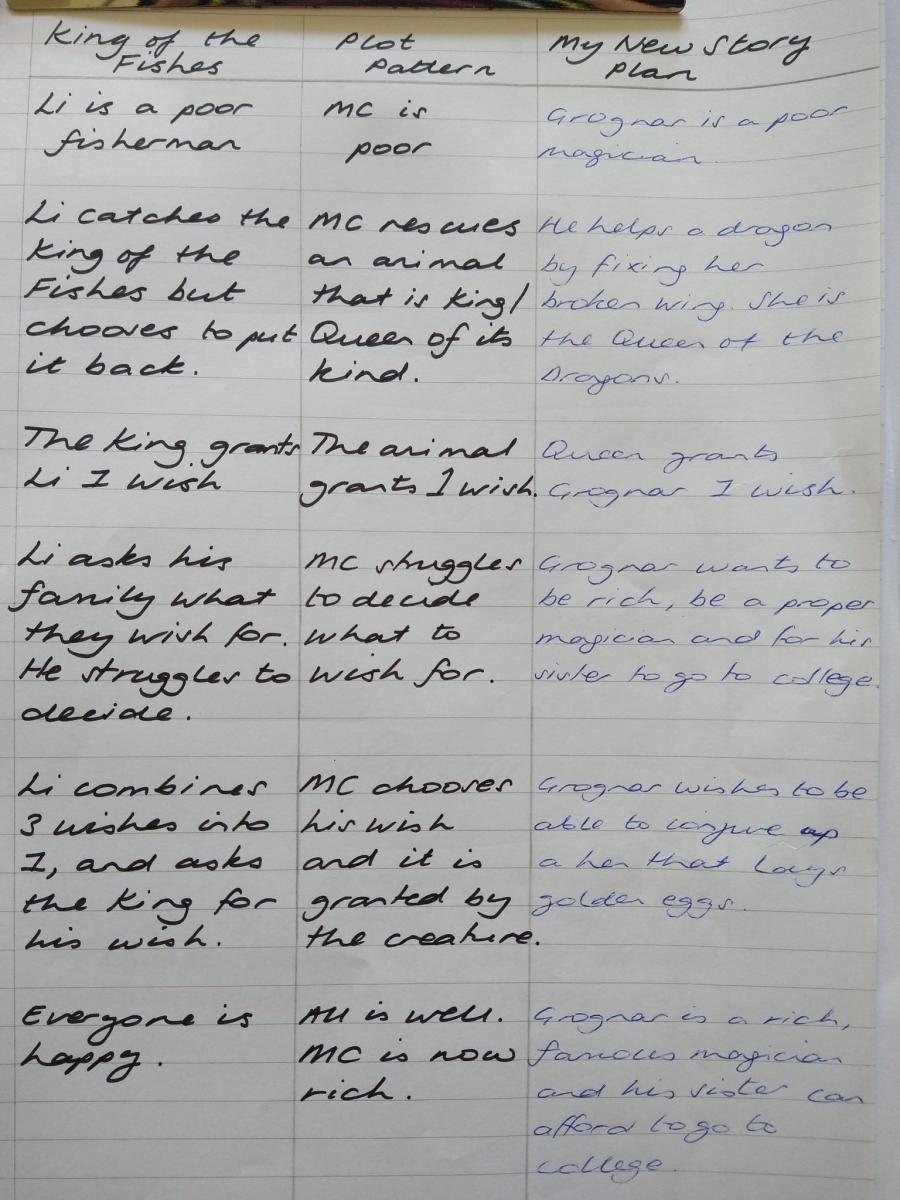 King of the
Fishes
Plot
Pattern
My New Story
Plan
Li is a poor
fisherman
MC is
poor
Grognar is a poor
magician.
Li catches the
King of the
Fishes but
chooses to put
it back.
MC rescues
an animal
that is King/
Queen of its
kind.
He helps a dragon
by fixing her
broken wing. She is
the Queen of the
Dragons.
The King grants
Li 1 wish
The animal
grants 1 wish.
Queen grants
Grognar 1 wish.
Li asks his
family what
they wish for.
He struggles to
decide.
MC struggles
to decide
what to
wish for.
Grognar wants to
be rich, be a proper
magician and for his
sister to go to college.
Li combines
3 wishes into
1, and asks
the King for
his wish.
MC chooses
his wish
and it is
granted by
the creature.
Grognar wishes to be
able to conjure up
a hen that lays
golden eggs.
Everyone is
happy.
All is well.
MC is now
rich.
Grognar is a rich,
famous magician
and his sister can
afford to go to
college.